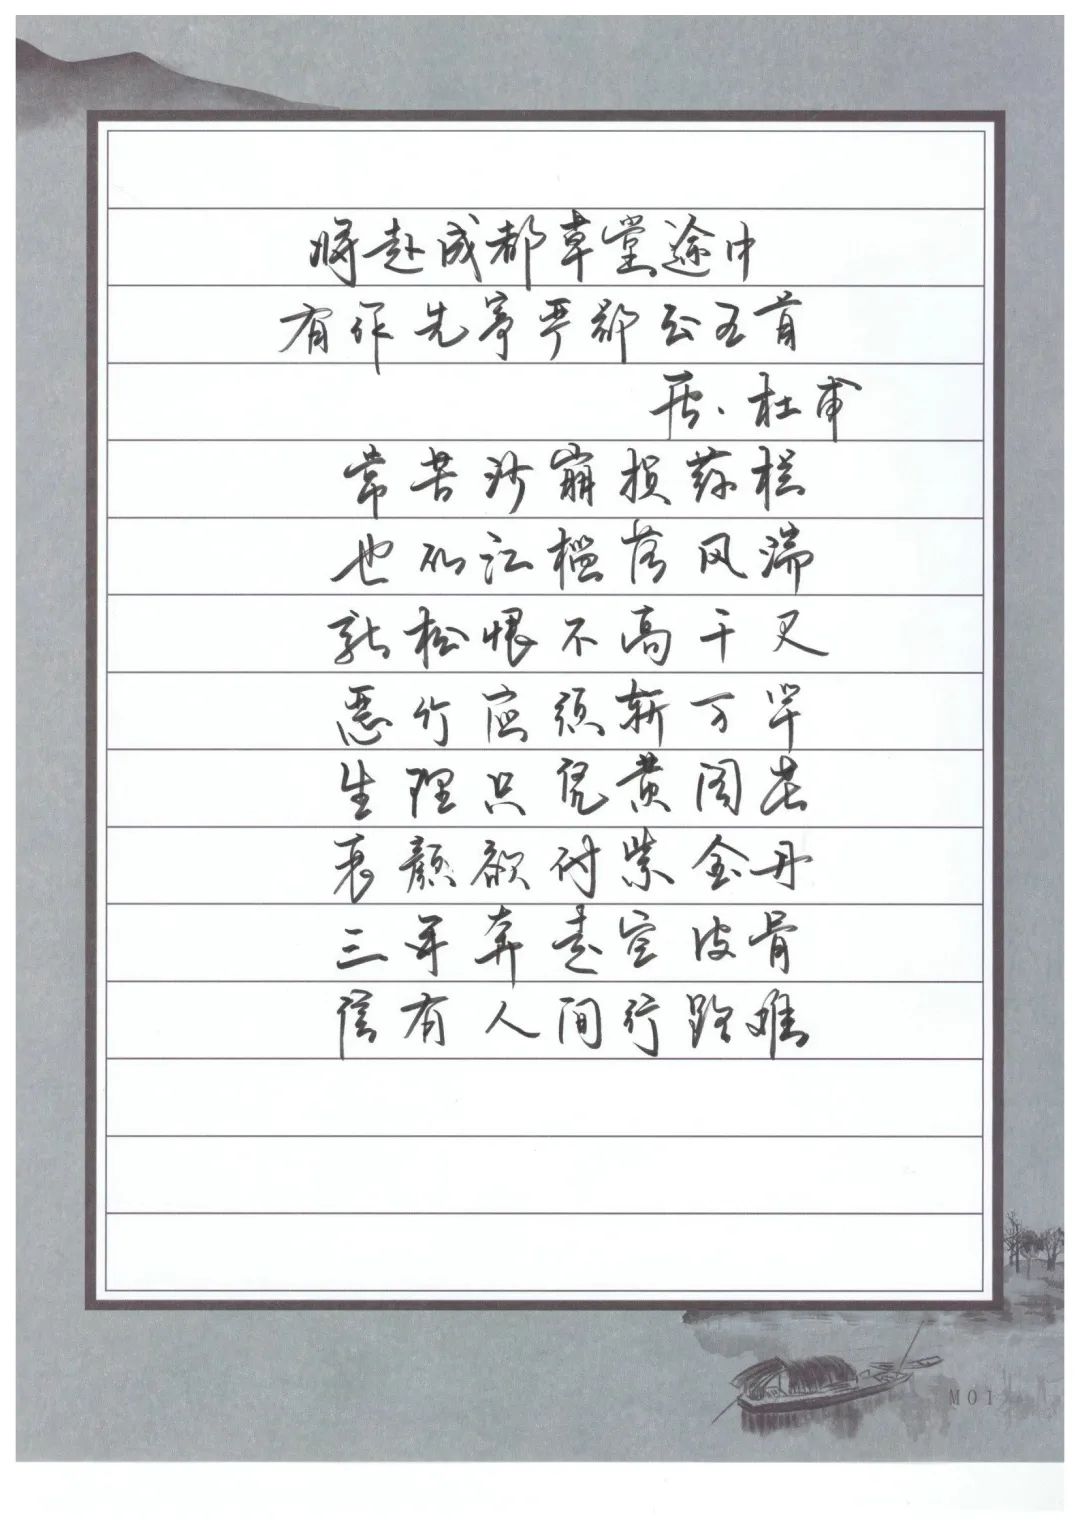 将赴成都草堂途中
有作先寄严郑公五首
唐·杜甫
常苦沙崩损药栏
也从江槛落风湍
新松恨不高千尺
恶竹应须斩万竿
生理只凭黄阁老
衰颜欲付紫金丹
三年奔走空皮骨
信有人间行路难
M01